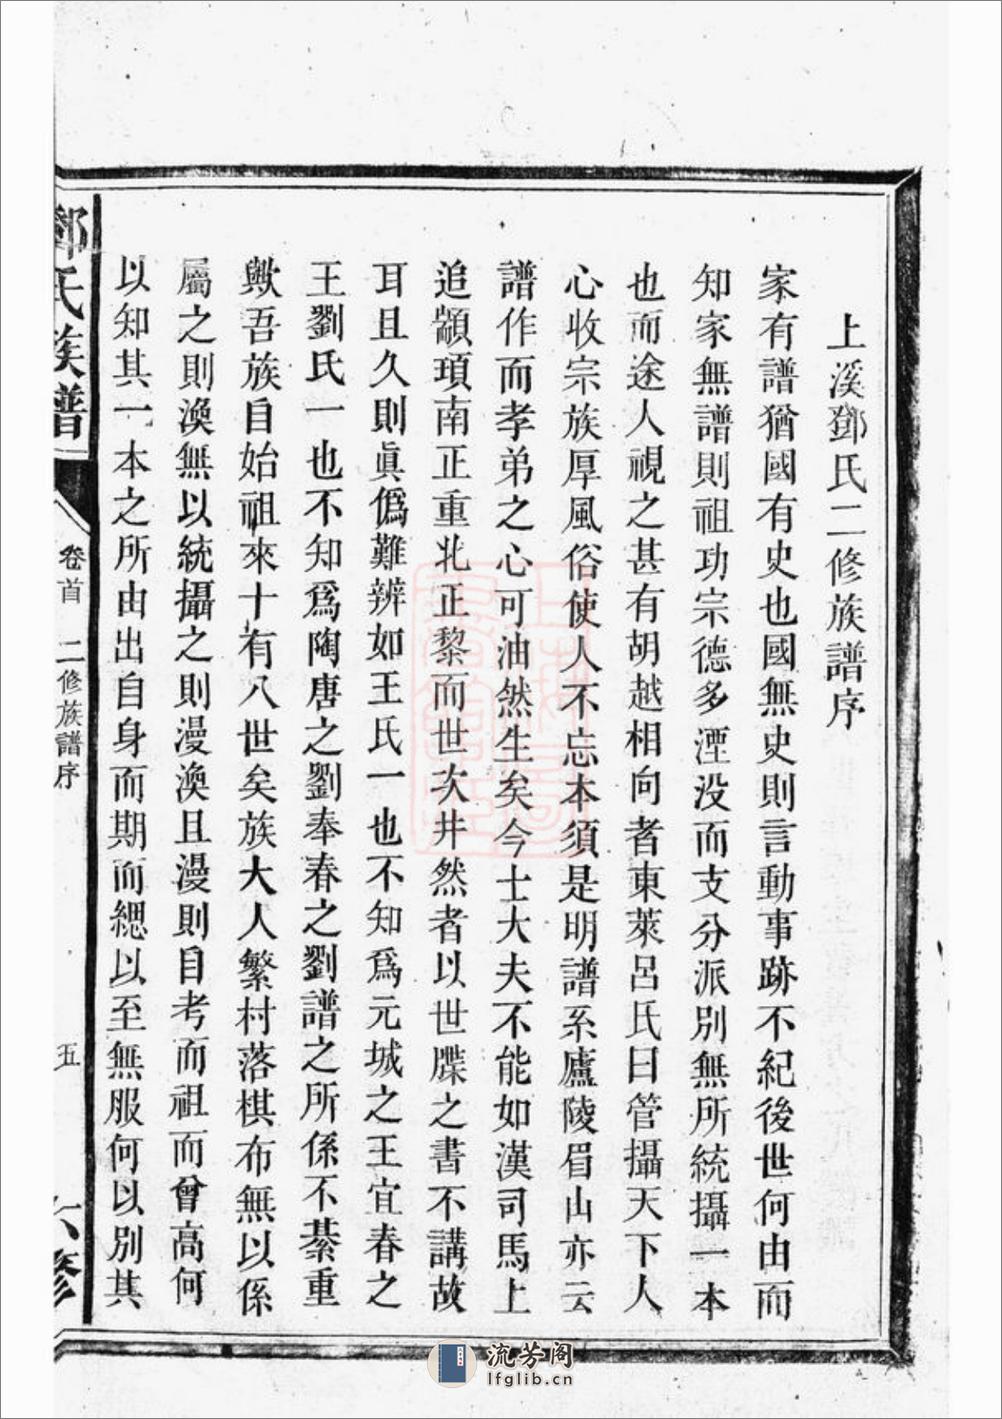 上溪鄧氏二修族譜序
家有譜猶國有史也國無史則言動事跡不紀後世何由而
知家無譜則祖功宗德多湮没而支分派別無所統攝一本
也而途人視之甚有胡越相向者東萊呂氏曰管攝天下人
心收宗族厚風俗使人不忘本須是明譜系廬陵眉山亦云
譜作而孝弟之心可油然生矣今士大夫不能如漢司馬上
追顓頊南正重北正黎而世次井然者以世牒之書不講故
耳且久則眞僞難辨如王氏一也不知爲元城之王宜春之
王劉氏一也不知爲陶唐之劉奉春之劉譜之所係不綦重
歟吾族自始祖來十有八世矣族大人繁村落棋布無以係
屬之則渙無以統攝之則漫渙且漫則自考而祖而曾高何
以知其一本之所由出自身而期而緦以至無服何以別其
鄧氏族譜
卷首
二修族譜序
五
六修
流芳阁
lfglib.cn